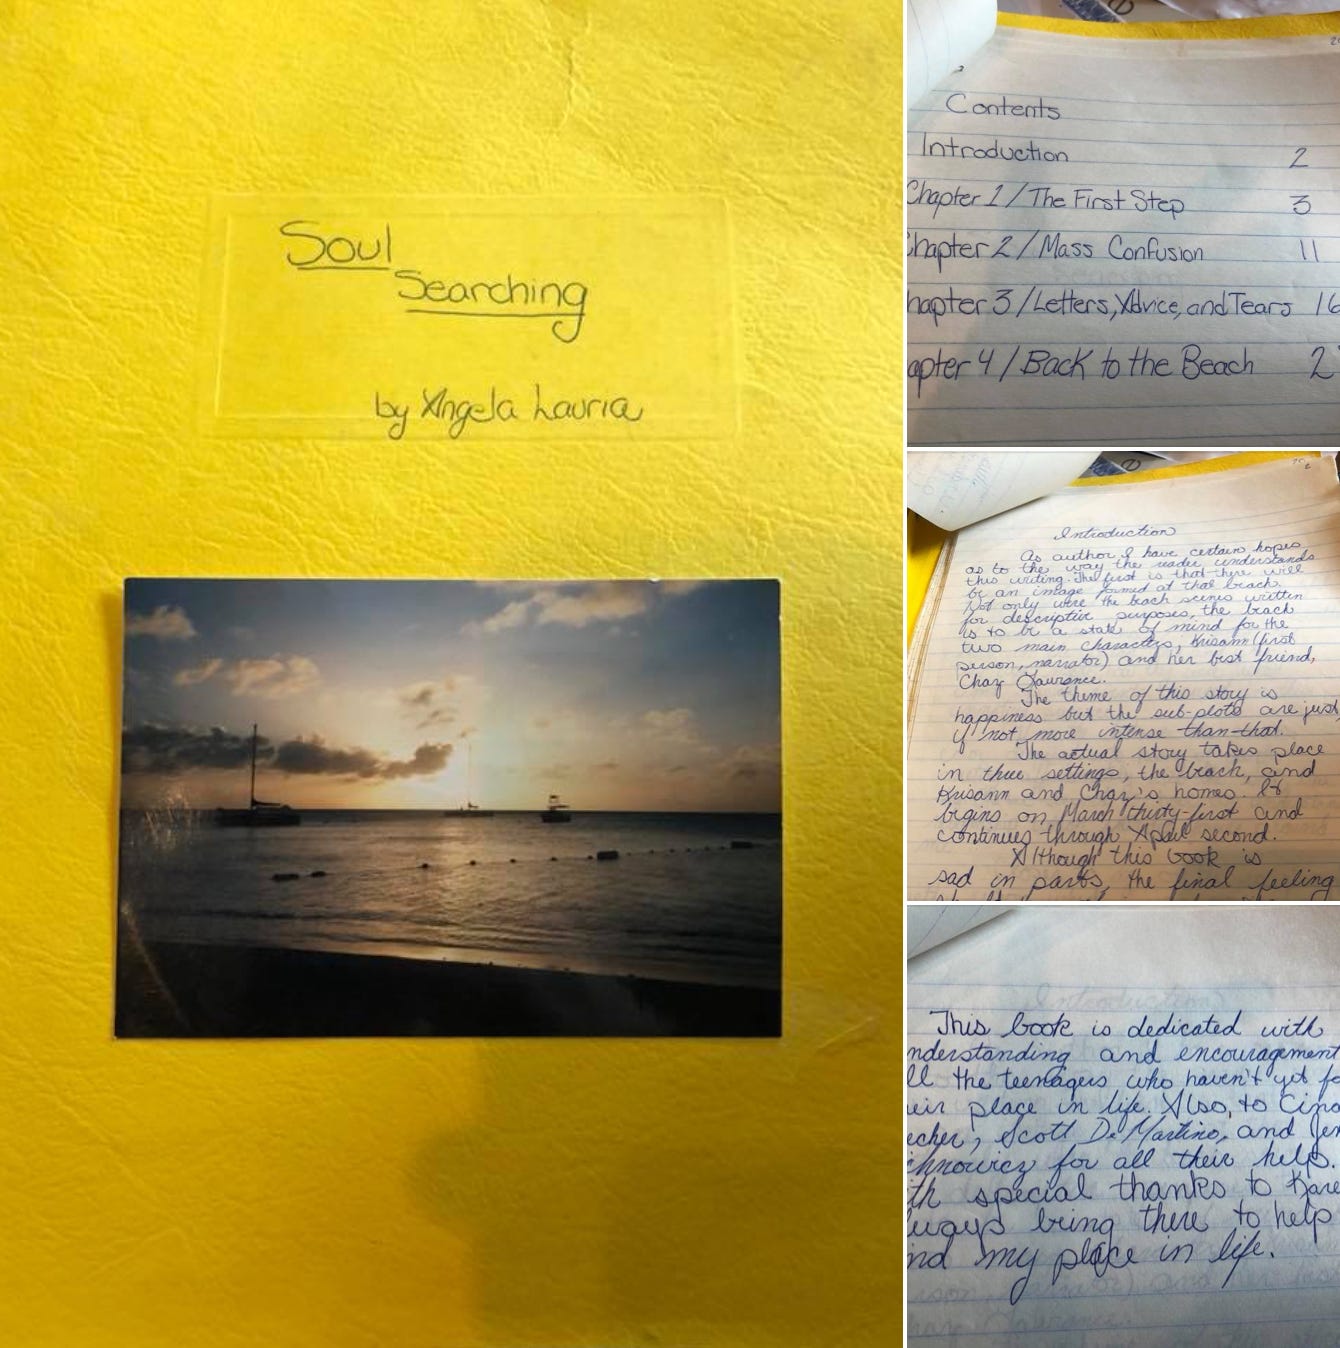 Soul
Searching
by Angela Lauria
Contents
Introduction 2
Chapter 1 / The First Step 3
Chapter 2 / Mass Confusion 11
hapter 3 / Letters, Advice, and Tears 16
apter 4 / Back to the Beach 2
Introduction
As author I have certain hopes
as to the way the reader understands
this writing. The first is that there will
be an image formed at that beach.
Not only were the beach scenes written
for descriptive purposes, the beach
is to be a state of mind for the
two main characters, Krisann (first
person, narrator) and her best friend,
Chaz Lawrence.
The theme of this story is
happiness but the sub-plots are just,
if not more intense than that.
The actual story takes place
in three settings, the beach, and
Krisann and Chaz's homes. It
begins on March thirty-first and
continues through April second.
Although this book is
sad in parts, the final feeling
This book is dedicated with
nderstanding and encouragement
ll the teenagers who haven't yet fo
eir place in life. Also, to Cind
echer, Scott DeMartino, and Jen
chnowicz for all their help.
th special thanks to Kare
lways being there to help
nd my place in life.